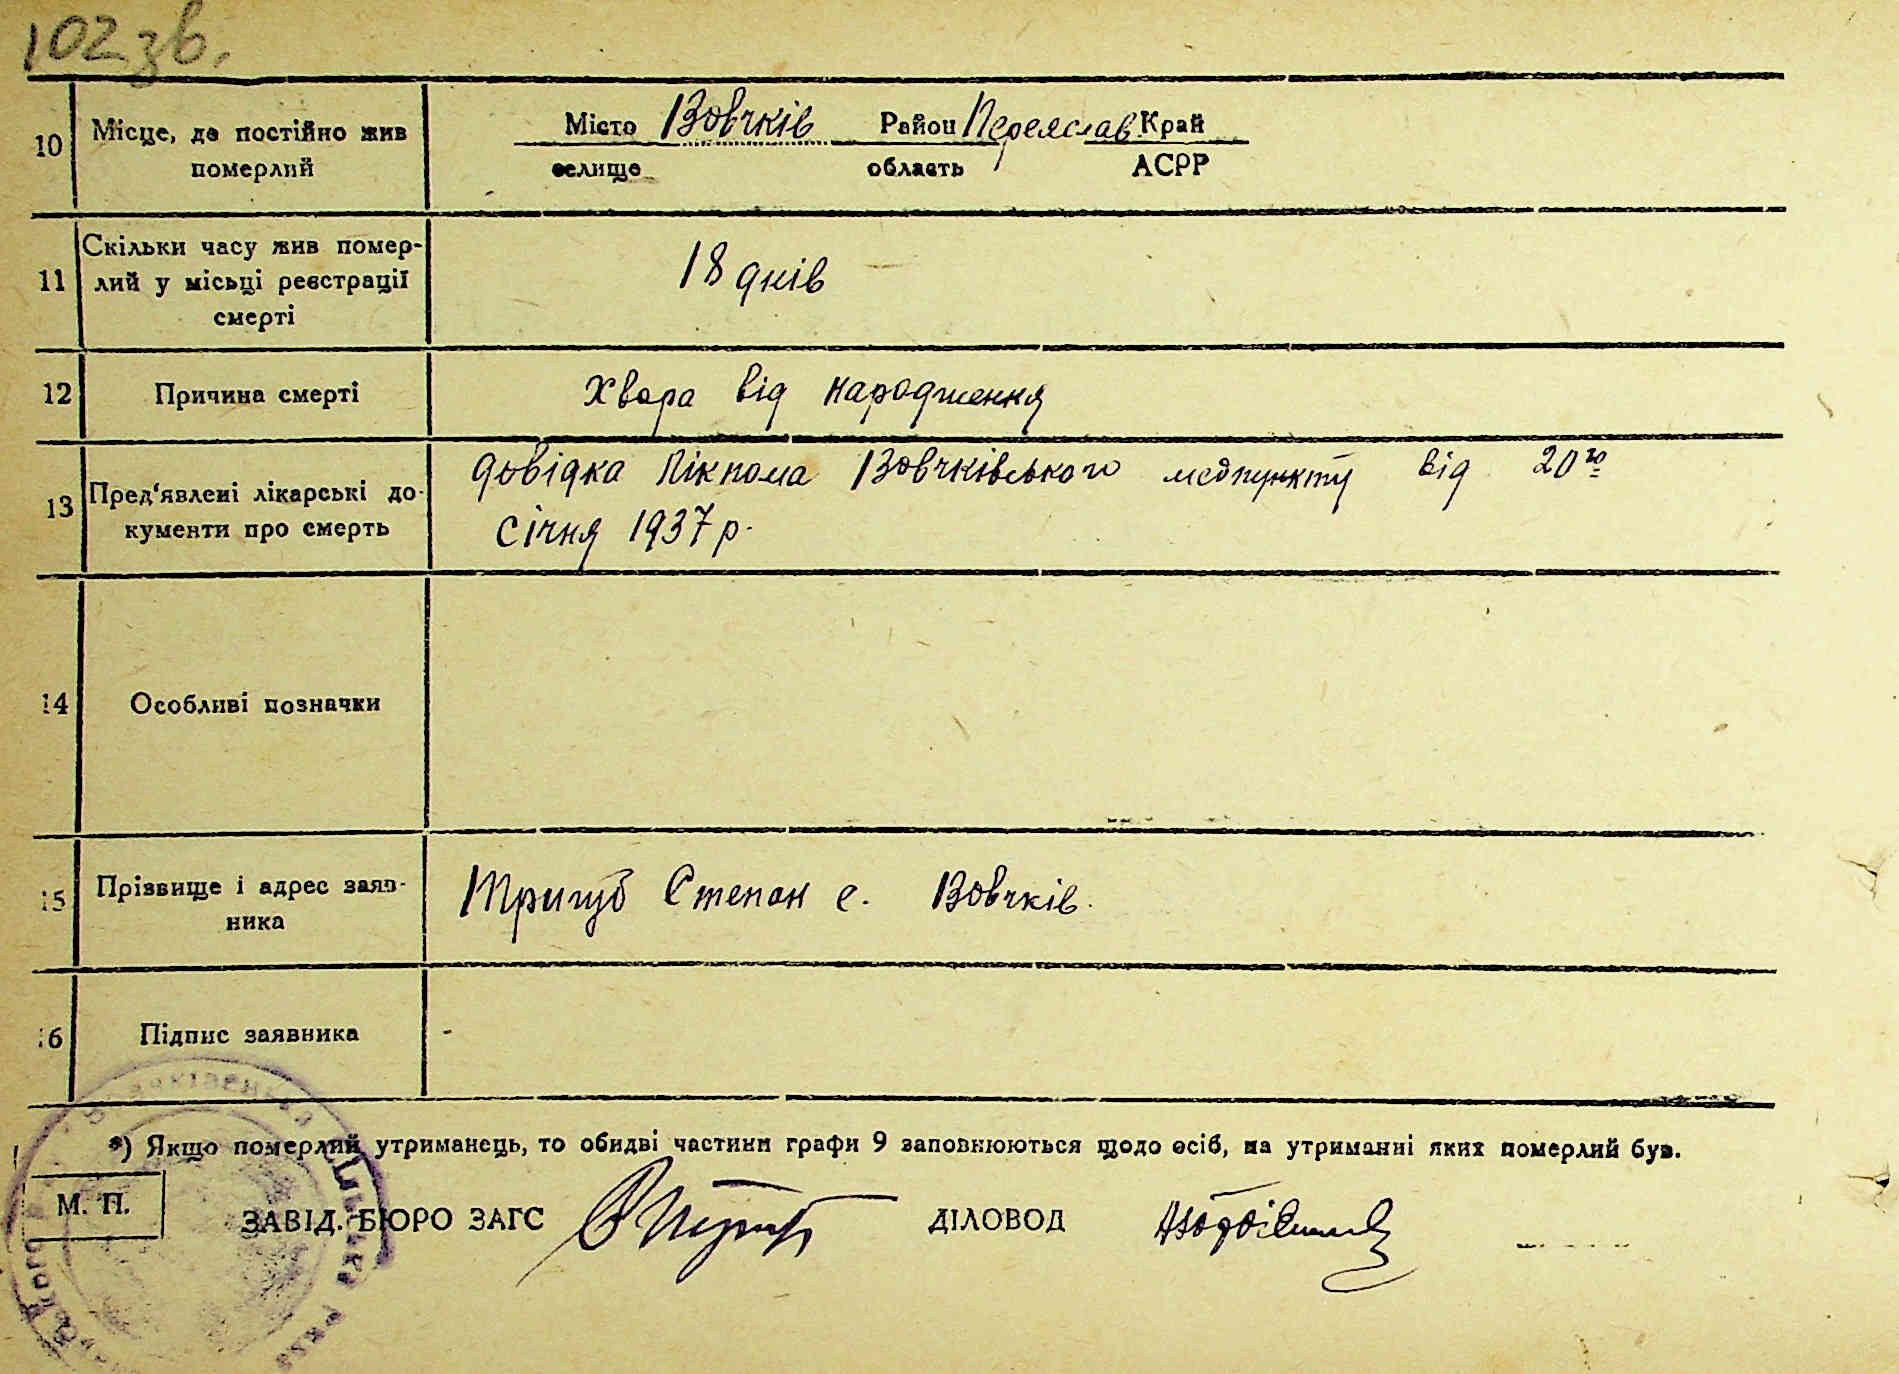 102 зв.
10 Місце, де постійно жив померлий
Місто Вовчків Район Переяслав Край
селище область АСРР
11 Скільки часу жив помер-
лий у місьці реєстрації
смерті
18 днів
12 Причина смерті Хвора від народження
13 Пред'явлені лікарські до-
кументи про смерть
довідка Лікпома Вовчківського медпункту від 20го
січня 1937 р.
14 Особливі позначки
15 Прізвище і адрес заяв-
ника
Тригуб Степан с. Вовчків.
16 Підпис заявника -
*) Якщо померлий утриманець, то обидві частини графи 9 заповнюються щодо осіб, на утриманні яких померлий був.
М. П.
ЗАВІД. БЮРО ЗАГС ДІЛОВОД